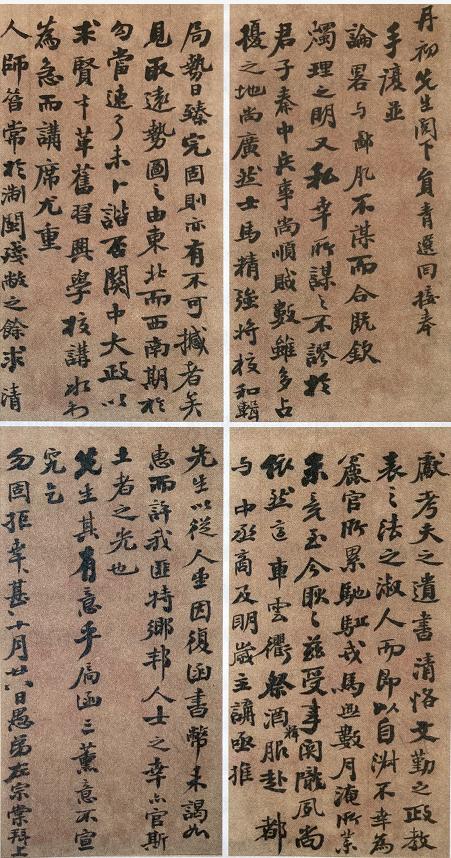 丹初先生閣下負青選同接奉
手渡並
論畧与鄙見不謀而合既欽
燭理之明又私幸所謀之不謬於
君子秦中兵事尚順賊數雖多占
擾之地尚廣然士馬精強將校和輯
局勢日臻完固則亦有不可撼者矣
見取遠勢圖之由東北而西南期於
勻當速了未卜諧否關中大政以
求賢才革舊習興學校講水利
為急而講席尤重
人師舊常於浙閩殘敝之餘求清
獻考夫之遺書清恪文勤之政教
表之法之淑人而即以自淑不幸為
麤官所累馳驅戎馬無數月淹所業
未竟至今耿々茲受事關隴風尚
依然這車雲衢祭酒釋服赴都
與中丞商及明歲主講亟推
先生以從人望因復函書幣來謁如
惠而許我匪特鄉邦人士之幸亦官斯
土者之光也
先生其有意乎肅函三薰意不宣
究乞
勿固拒幸甚々十月廿八日愚弟左宗棠拜上